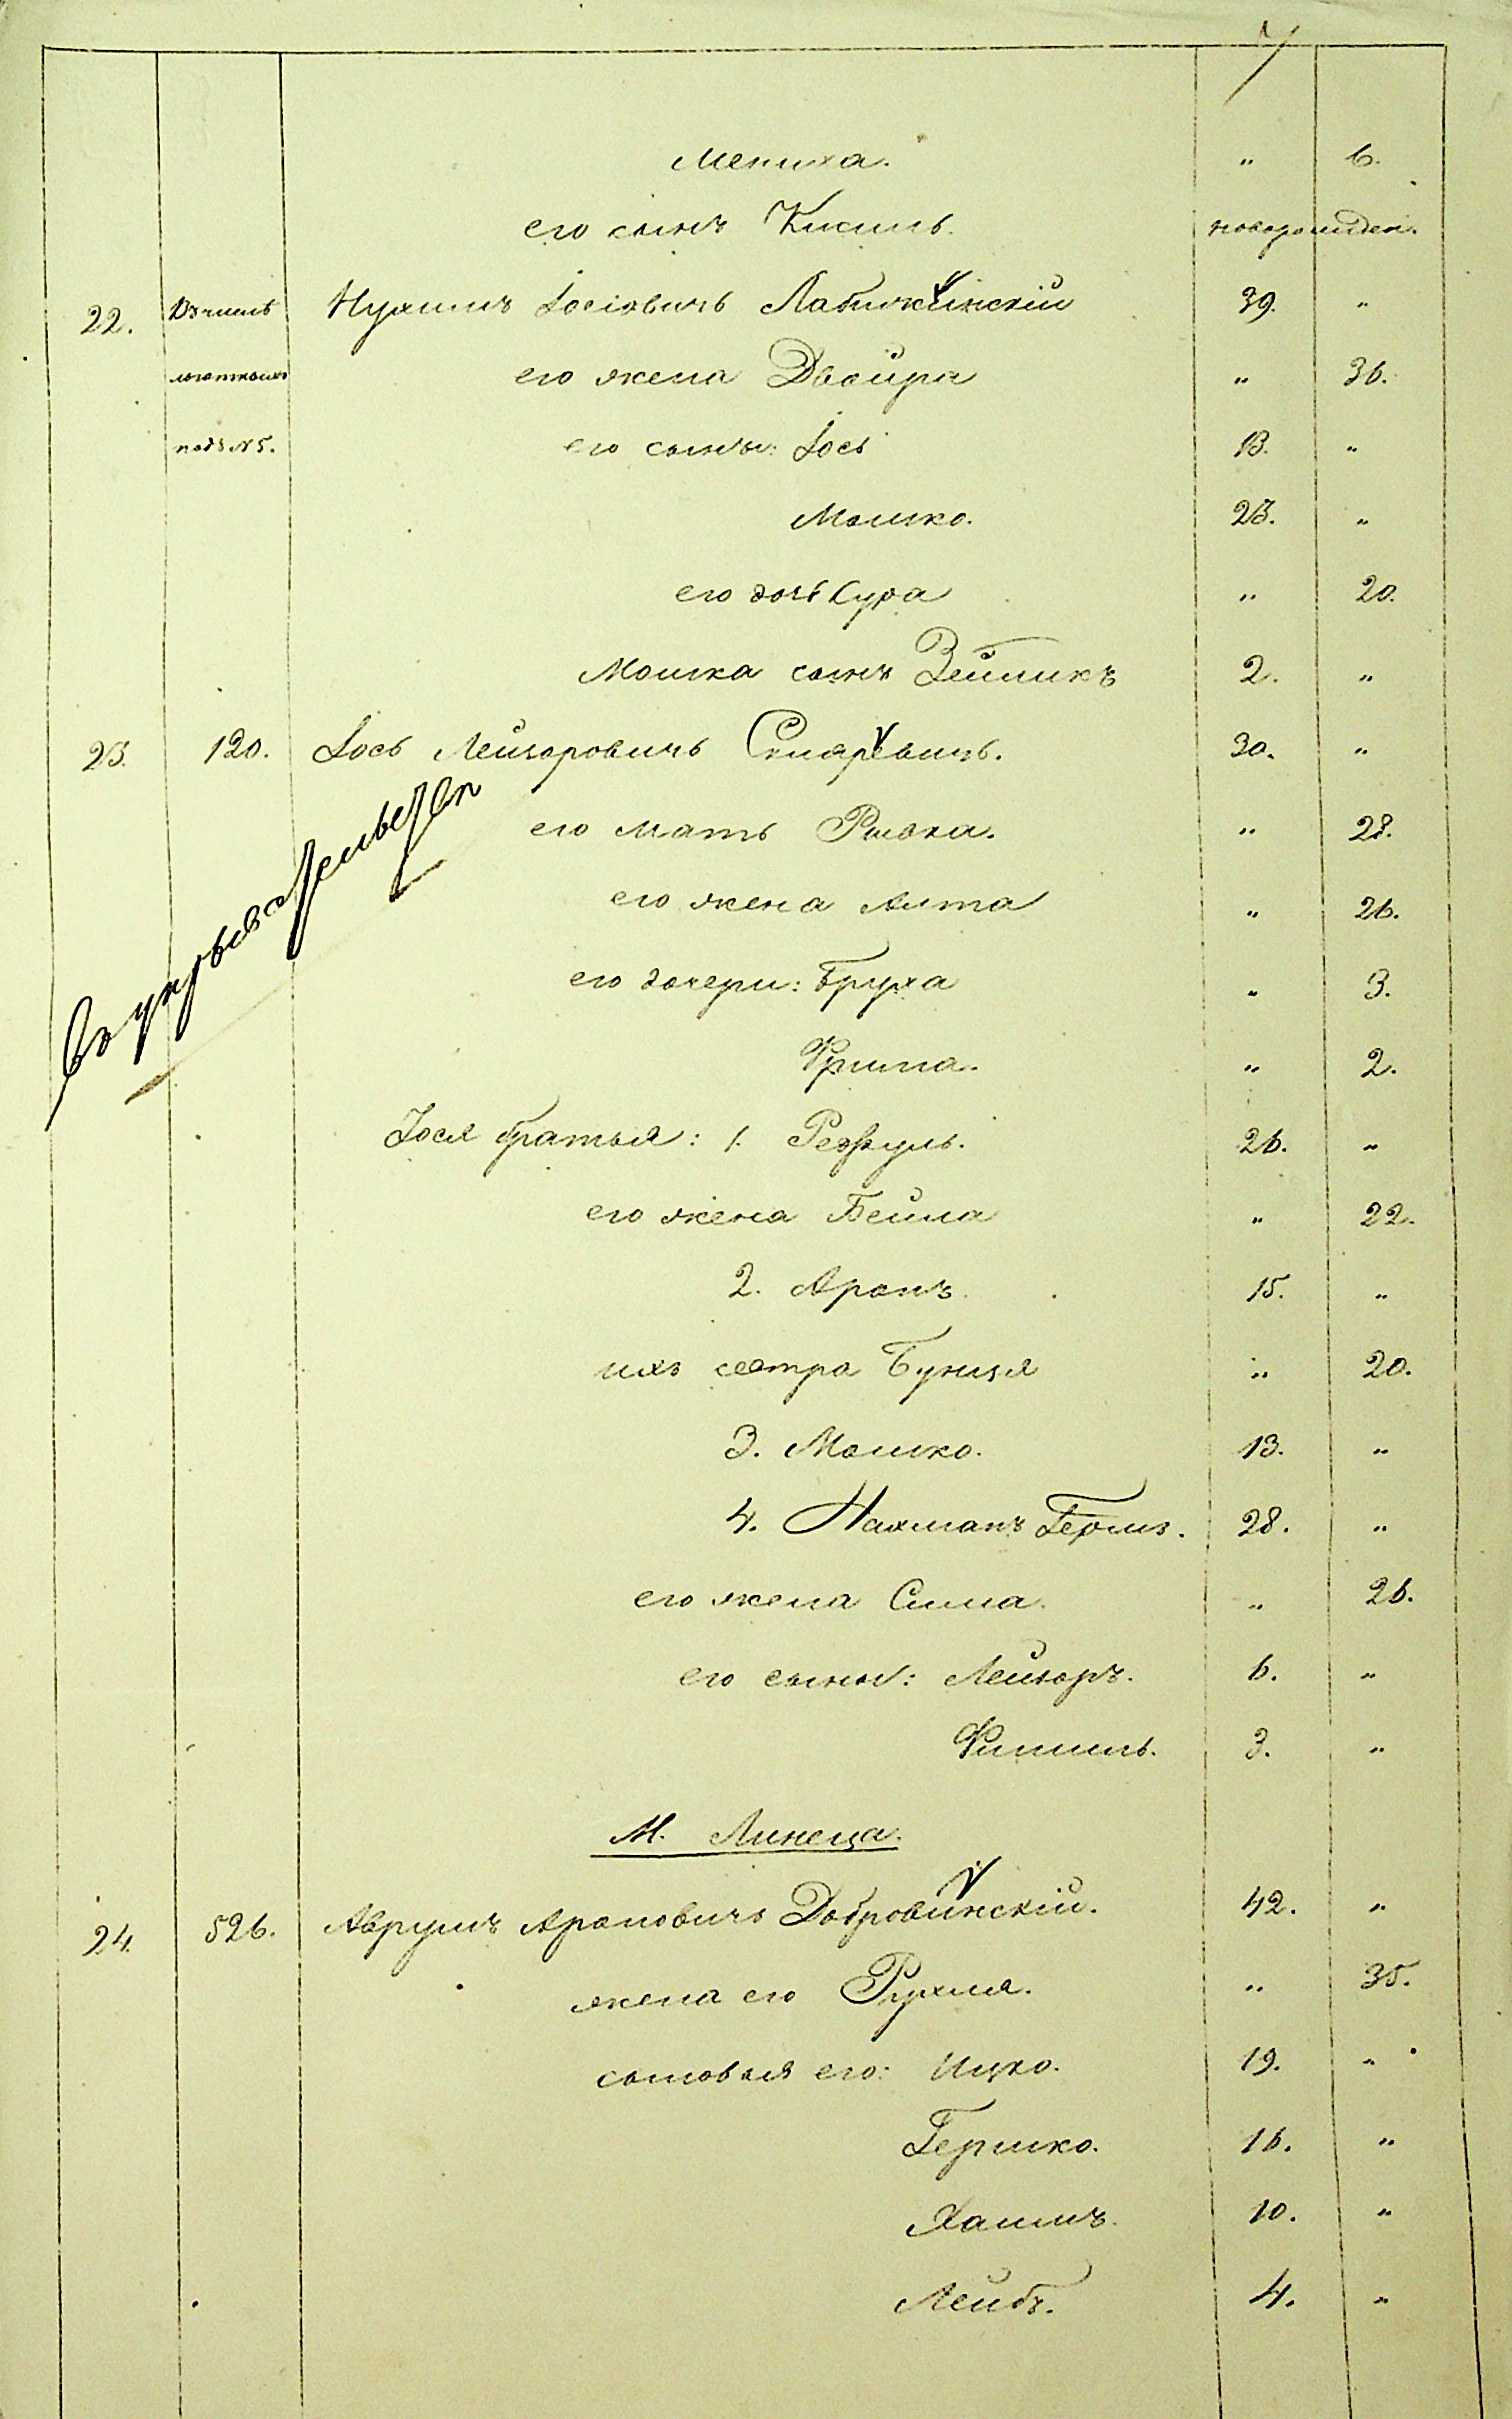 7
Мениха. " 6.
его сынъ Кисиль. новорожден.
22. Въ числѣ Нухимъ Іосіовичъ Лабижинскій 39. "
его жена Двойра " 36.
подъ №5. его сыны: Іось 13. "
Мошко. 23. "
его дочь Сура " 20.
Мошка сынъ Зейликъ 2. "
23. 120. Іось Лейзоровичъ 30. "
его мать Рывка. " 28.
его жена Алта " 26.
его дочери: Бруха " 3.
Фрима. " 2.
Іося братья: 1. 26. "
его жена Бейла " 22.
2. Аронъ. 15. "
ихъ сестра Бунця " 20.
3. Мошко. 13. "
4. Нахманъ Гершъ. 28. "
его жена Сима. " 26.
его сыны: Лейзоръ. 6. "
Фишель. 3. "
М. Линеца.
24. 526. Аврумъ Ароновичъ Добровинскій. 42. "
жена его Рухля. " 35.
сыновья его: Ицко. 19. "
Гершко. 16. "
Хаимъ. 10. "
Лейбъ. 4. "